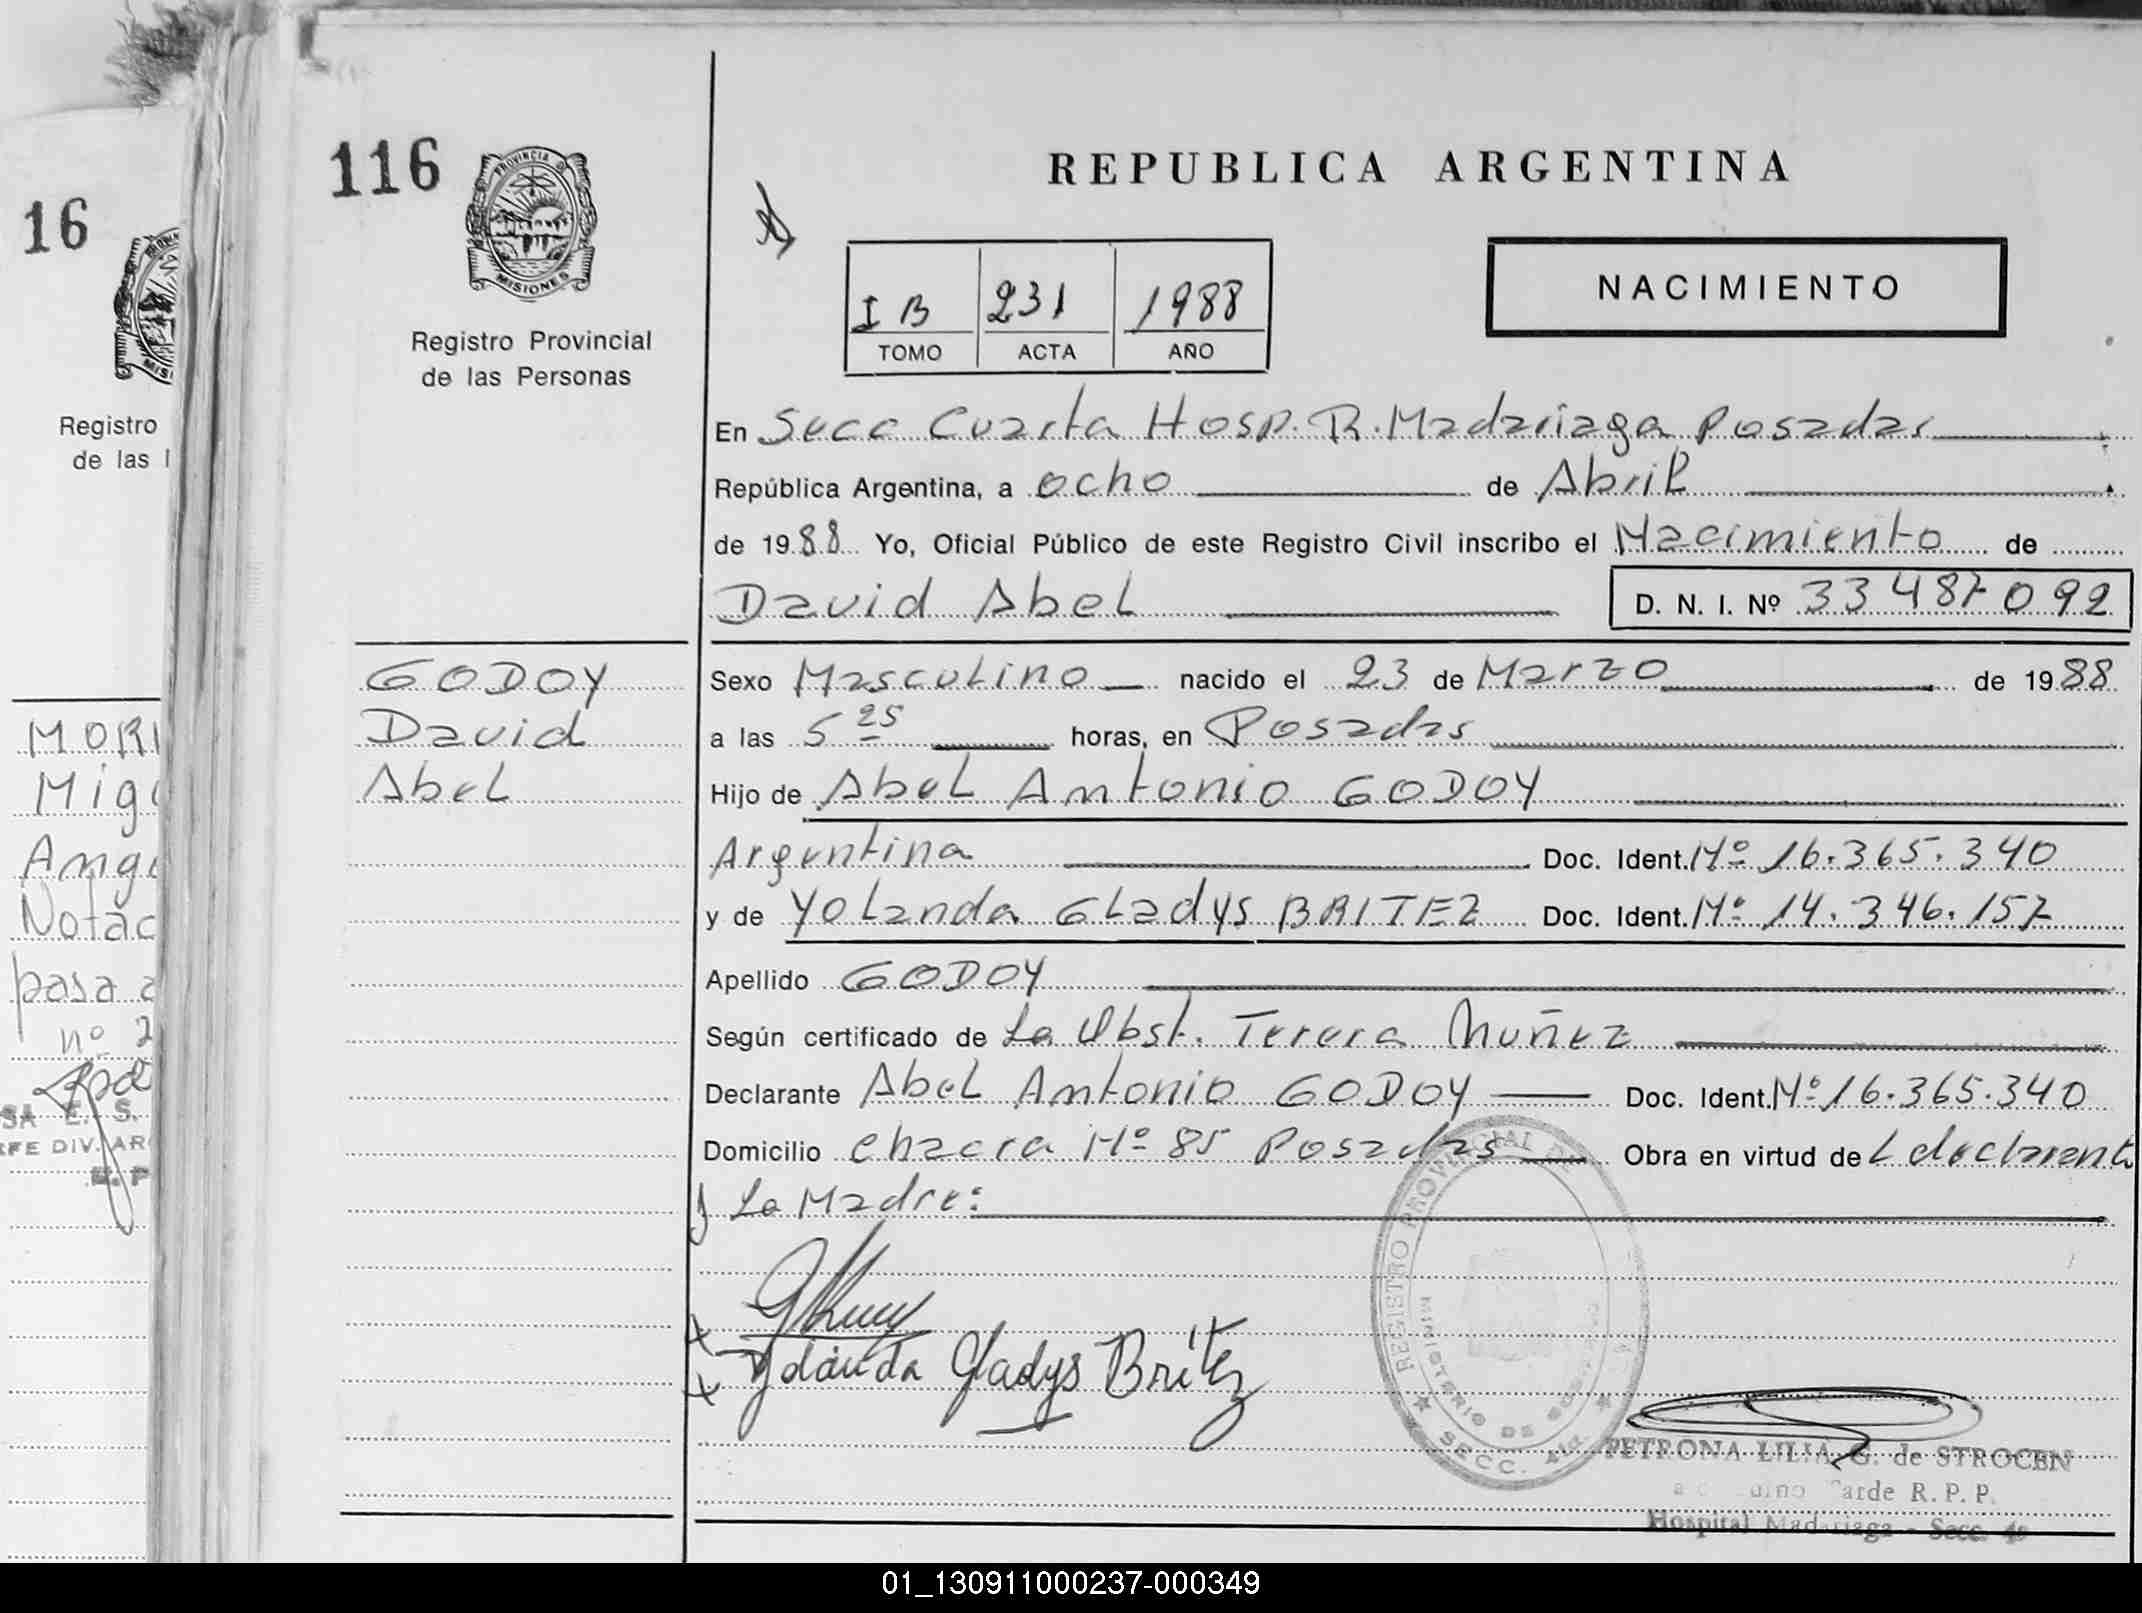 16
Registro
de las
MORI
Migu
Ange
Notac
pasa a
nº 2
SA E. S.
EFE DIV. AR
116
PROVINCIA D
MISIONES
Registro Provincial
de las Personas
GODOY
David
Abel
REPUBLICA ARGENTINA
I B 231 1988
TOMO ACTA AÑO
NACIMIENTO
En Secc Cuarta Hosp. R. Madariaga Posadas
República Argentina, a ocho de Abril
de 1988 Yo, Oficial Público de este Registro Civil inscribo el Nacimiento de
David Abel D. N. I. Nº 33487092
Sexo Masculino nacido el 23 de Marzo de 1988
a las 5 25 horas, en Posadas
Hijo de Abel Antonio GODOY
Argentina Doc. Ident. Nº 16.365.340
y de Yolanda Gladys BRITEZ Doc. Ident. Nº 14.346.157
Apellido GODOY
Según certificado de La Obst. Teresa Nuñez
Declarante Abel Antonio GODOY Doc. Ident. Nº 16.365.340
Domicilio chacra Nº 85 Posadas Obra en virtud de L declarante
y La Madre:
Yolanda Gladys Britez
REGISTRO PROVINCIAL DE
MINISTERIO DE GOBIERNO
SECC. 4ta.
PETRONA LILIA G. de STROCEN
Tarde R. P. P.
Hospital Madariaga - Secc. 4a
01_130911000237-000349